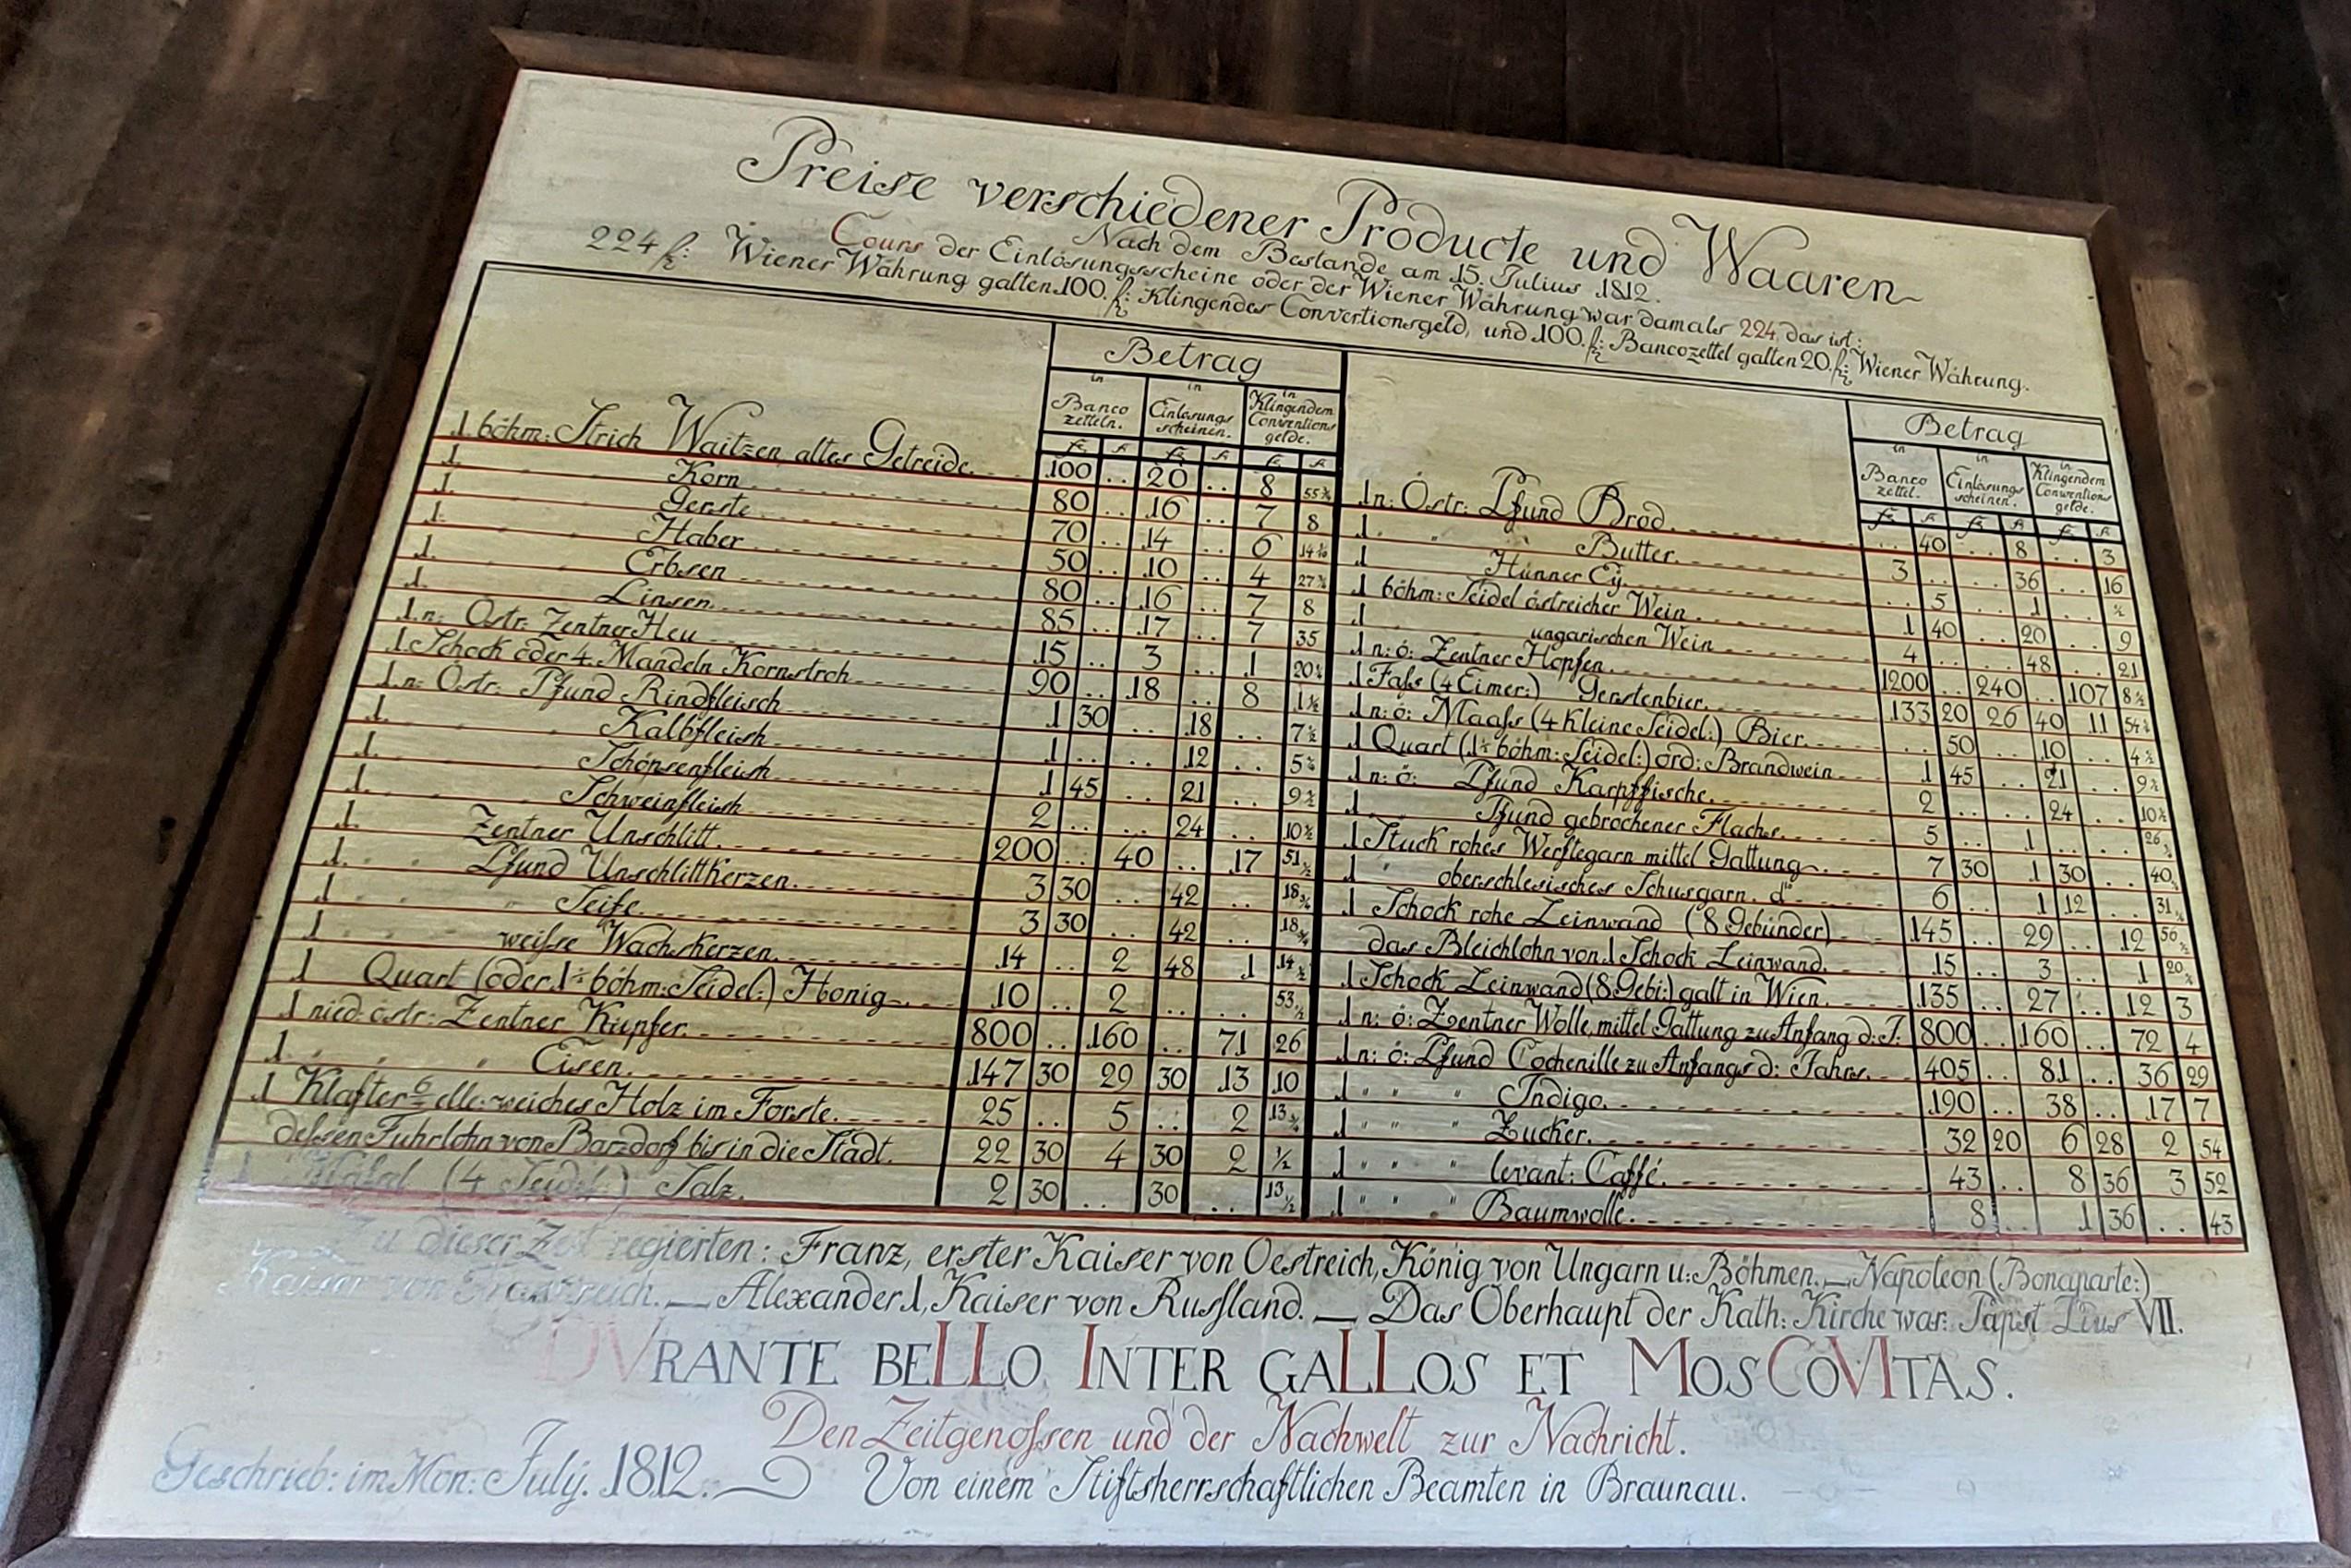 Preise verschiedener Producte und Waaren
Nach dem Bestande am 15. Julius 1812.
Cours der Einlösungsscheine oder der Wiener Währung war damals 224, das ist:
224 f: Wiener Währung galten 100. f: Klingendes Conventionsgeld, und 100. f: Bancozettel galten 20. f: Wiener Währung.
Betrag
in Banco zetteln. in Einlösungs scheinen. in Klingendem Conventions gelde.
1. böhm: Strich Waitzen altes Getreide. 100 .. 20 .. 8 55¾
1. Korn 80 .. 16 .. 7 8
1. Gerste 70 .. 14 .. 6
1. Haber 50 .. 10 .. 4 27¾
1. Erbsen 80 .. 16 .. 7 8
1. Linsen 85 .. 17 .. 7 35
1. n: Östr: Zentner Heu 15 .. 3 .. 1 20¼
1. Schock oder 4 Mandeln Kornstroh 90 .. 18 .. 8 1½
1. n: Östr: Pfund Rindfleisch 1 30 .. 18 .. 7½
1. Kalbfleisch 1 .. .. 12 .. 5
1. Schöpsenfleisch 1 45 .. 21 .. 9½
1. Schweinfleisch 2 .. .. 24 .. 10½
1. Zentner Unschlitt 200 .. 40 .. 17 51½
1. Pfund Unschlittkerzen. 3 30 .. 42 .. 18¾
1 Seife 3 30 .. 42 .. 18¾
1 weisse Wachskerzen. 14 .. 2 48 1 14½
1 Quart (oder 1½ böhm: Seidel:) Honig 10 .. 2 .. .. 53½
1 nied: östr: Zentner Kupfer. 800 .. 160 .. 71 26
1 " Eisen. 147 30 29 30 13 10
1 Klafter 6/4 elle: weiches Holz im Forste. 25 .. 5 .. 2 13¾
dessen Fuhrlohn von Barzdorf bis in die Stadt. 22 30 4 30 2 ½
1 (4 Seidel:) Salz. 2 30 .. 30 .. 13½
Betrag
in Banco zettel. in Einlösungs scheinen. in Klingendem Conventions gelde.
1 n: Östr: Pfund Brod .. 40 .. 8 .. 3
1. " Butter. 3 .. .. 36 .. 16
1 Hünner Ey. .. 5 .. 1 .. ½
1 böhm: Seidel östreicher Wein 1 40 .. 20 .. 9
1 ungarischen Wein 4 .. .. 48 .. 21
1 n: ö: Zentner Hopfen. 1200 .. 240 .. 107 8½
1 Fass (4 Eimer:) Gerstenbier. 133 20 26 40 11 54¼
1 n: ö: Maass (4 kleine Seidel:) Bier. .. 50 .. 10 .. 4½
1 Quart (1½ böhm: Seidel:) ord: Brandwein 1 45 .. 21 .. 9½
1 n: ö: Pfund Karpffische. 2 .. .. 24 .. 10½
1 Pfund gebrochener Flachs. 5 .. 1 .. .. 26
1 Stuck rohes Werftegarn mittel Gattung 7 30 1 30 .. 40
1 " oberschlesisches Schusgarn. dto 6 .. 1 12 .. 31
1 Schock rohe Leinwand (8 Gebünder) 145 .. 29 .. 12 56½
das Bleichlohn von 1 Schock Leinwand. 15 .. 3 .. 1 20
1 Schock Leinwand (8 Gebi:) galt in Wien. 135 .. 27 .. 12 3
1 n: ö: Zentner Wolle, mittel Gattung zu Anfang d: J. 800 .. 160 .. 72 4
1 n: ö: Pfund Cochenille zu Anfangs d: Jahrs. 405 .. 81 .. 36 29
1 " " " Indigo. 190 .. 38 .. 17 7
1 " " " Zucker. 32 20 6 28 2 54
1 " " " levant: Caffé. 43 .. 8 36 3 52
1 " " " Baumwolle. 8 .. 1 36 .. 43
Zu dieser Zeit regierten: Franz, erster Kaiser von Oestreich, König von Ungarn u: Böhmen. — Napoleon (Bonaparte:)
Kaiser von Frankreich. — Alexander 1, Kaiser von Russland. — Das Oberhaupt der Kath: Kirche war: Papst Pius VII.
DVRANTE BELLO INTER GALLOS ET MOSCOVITAS.
Den Zeitgenossen und der Nachwelt zur Nachricht.
Geschrieb: im Mon: July. 1812. Von einem Stiftsherrschaftlichen Beamten in Braunau.